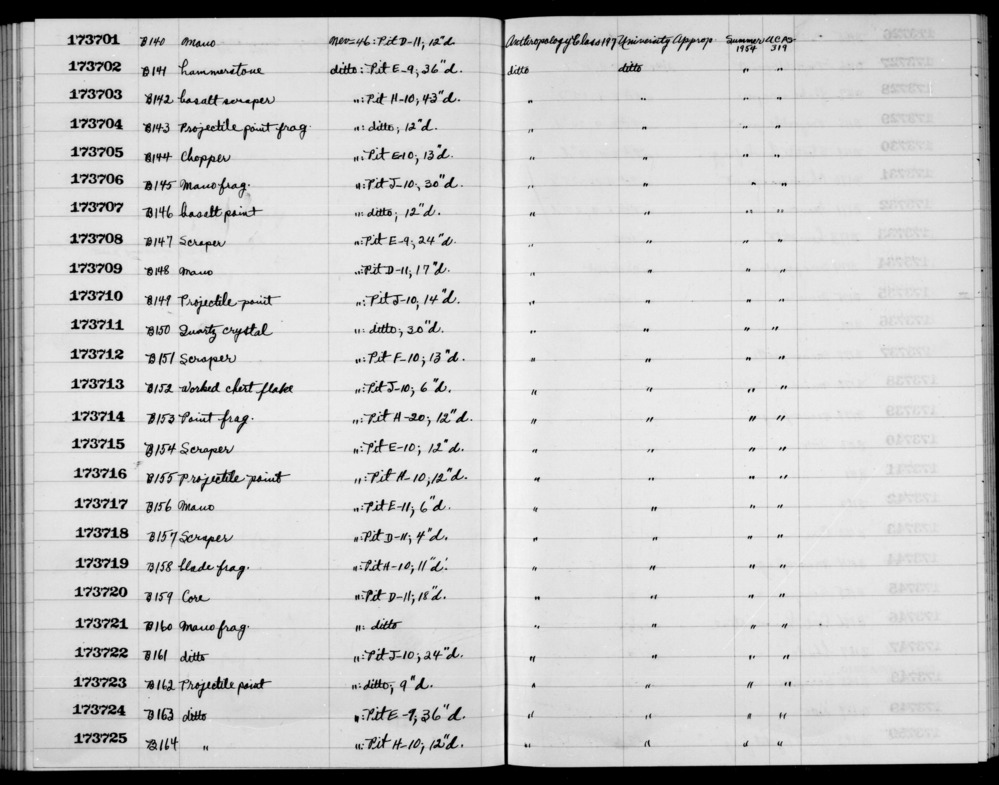 173701 B140 Mano Nev-46: Pit D-11, 12"d. Anthropology Class 197 University Approp. Summer 1954 UCAS 319
173702 B141 hammerstone ditto: Pit E-9; 36"d. ditto ditto " "
173703 B142 basalt scraper ": Pit H-10; 43"d. " " " "
173704 B143 Projectile point frag. ": ditto; 12"d. " " " "
173705 B144 Chopper ": Pit E-10; 13"d. " " " "
173706 B145 Mano frag. ": Pit J-10; 30"d. " " " "
173707 B146 basalt point ": ditto; 12"d. " " " "
173708 B147 Scraper ": Pit E-9; 24"d. " " " "
173709 B148 Mano ": Pit D-11; 17"d. " " " "
173710 B149 Projectile point ": Pit J-10; 14"d. " " " "
173711 B150 Quartz crystal ": ditto; 30"d. " " " "
173712 B151 Scraper ": Pit F-10; 13"d. " " " "
173713 B152 worked chert flake ": Pit J-10; 6"d. " " " "
173714 B153 Point frag. ": Pit H-20; 12"d. " " " "
173715 B154 Scraper ": Pit E-10; 12"d. " " " "
173716 B155 Projectile point ": Pit H-10; 12"d. " " " "
173717 B156 Mano ": Pit E-11; 6"d. " " " "
173718 B157 Scraper ": Pit D-11; 4"d. " " " "
173719 B158 blade frag. ": Pit H-10; 11"d. " " " "
173720 B159 Core ": Pit D-11; 18"d. " " " "
173721 B160 Mano frag. ": ditto " " " "
173722 B161 ditto ": Pit J-10; 24"d. " " " "
173723 B162 Projectile point ": ditto; 9"d. " " " "
173724 B163 ditto ": Pit E-9; 36"d. " " " "
173725 B164 " ": Pit H-10; 12"d. " " " "